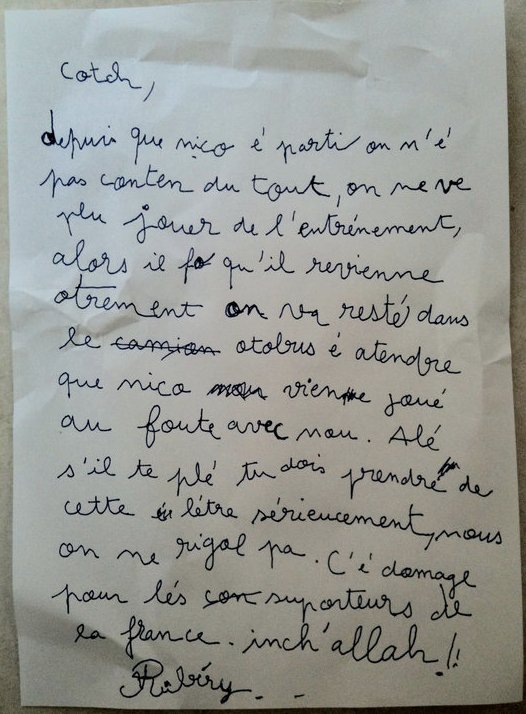 Cotch,
depuis que nico é parti on n'é
pas conten du tout, on ne ve
plu jouer de l'entrénement,
alors il fo qu'il revienne
otrement on va resté dans
le camion otobus é atendre
que nico vienne joué
au foute avec nou. Alé
s'il te plé tu dois prendre de
cette létre sérieucement, nous
on ne rigol pa. C'é domage
pour lés con suporteurs de
la france. inch'allah !!
Ribéry. - -